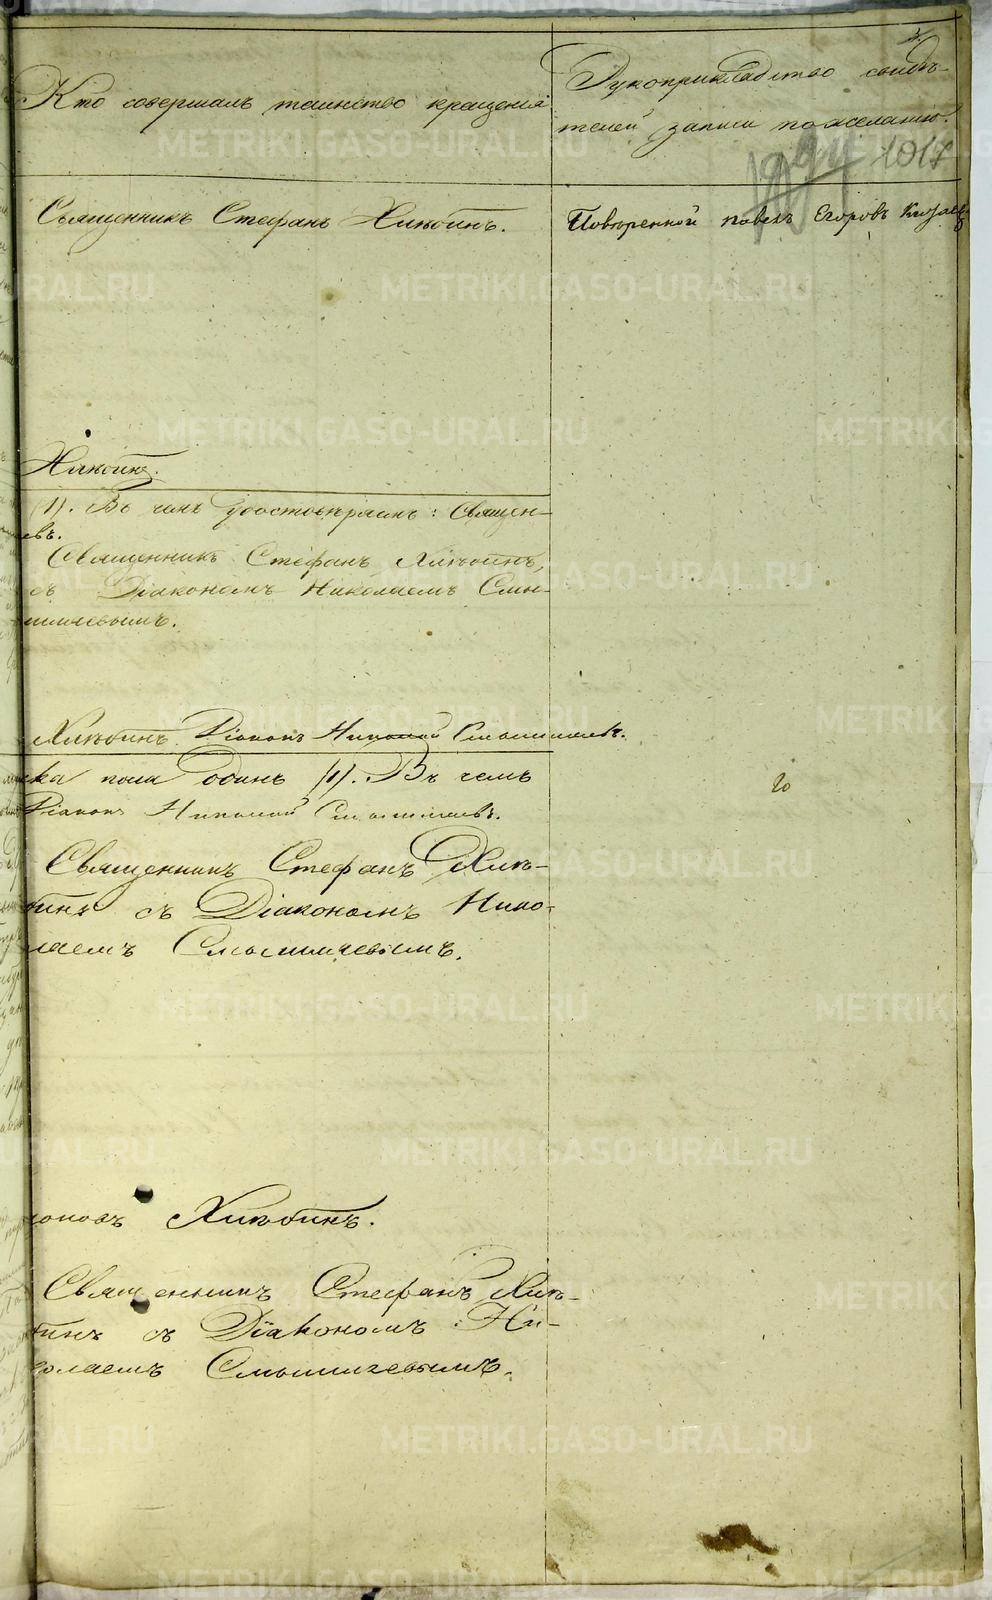 Кто совершалъ таинство крещенія
Рукоприкладство свидѣ-
телей записи по желанію.
1017
Священникъ Стефанъ Хлѣбинъ.
Повѣренной павелъ Егоровъ
Хлѣбинъ.
(1). Въ чемъ удостовѣряемъ: Священ-
евъ.
Священникъ Стефанъ Хлѣбинъ,
съ Діакономъ Николаемъ Смы-
шляевымъ.
Хлѣбинъ. Діаконъ Николай Смышляевъ.
ска пола Одинъ (1). Въ чемъ
Діаконъ Николай Смышляевъ.
Священникъ Стефанъ Хлѣ-
бинъ съ Діакономъ Нико-
лаемъ Смышляевымъ.
Хлѣбинъ.
Священникъ Стефанъ Хлѣ-
бинъ съ Діакономъ Ни-
колаемъ Смышляевымъ.
METRIKI.GASO-URAL.RU